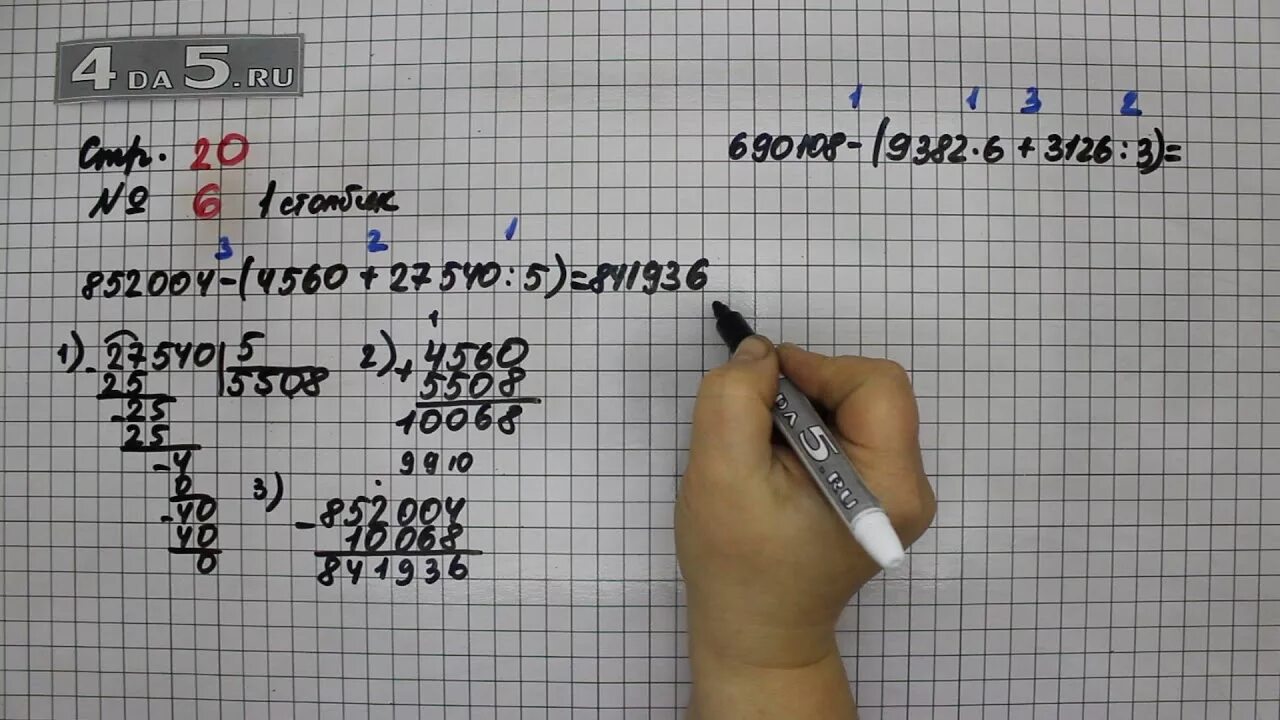 4DA5.RU
Стр. 20
№ 6 1 столбик
3 2 1
852004-(4560+27540:5)=841936
1) - 27540 | 5
25 5508
-25
25
-4
0
-40
40
0
2) 1
+ 4560
5508
10068
3) 9 9 10
- 852004
10068
841936
1 1 3 2
690108-(9382·6+3126:3)=
DA5.RU